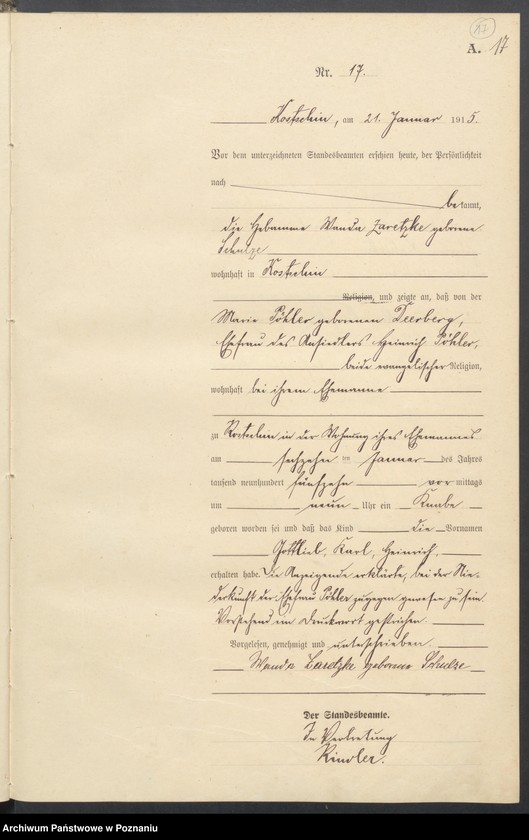 17
A. 17
Nr. 17.
Kostschin, am 21. Januar 1915.
Vor dem unterzeichneten Standesbeamten erschien heute, der Persönlichkeit
nach
bekannt,
die Hebamme Wanda Zaretzke geborene
Schulze
wohnhaft in Kostschin
Religion, und zeigte an, daß von der
Marie Pöhler geborenen Deerberg,
Ehefrau des Ansiedlers Heinrich Pöhler,
beide evangelischer Religion,
wohnhaft bei ihrem Ehemanne
zu Kostschin in der Wohnung ihres Ehemannes
am sechzehn ten Januar des Jahres
tausend neunhundert fünfzehn vor mittags
um neun Uhr ein Knabe
geboren worden sei und daß das Kind die Vornamen
Gottlieb, Karl, Heinrich,
erhalten habe. Die Anzeigende erklärte, bei der Nie-
derkunft der Ehefrau Pöhler zugegen gewesen zu sein.
Vorstehend ein Druckwort gestrichen.
Vorgelesen, genehmigt und unterschrieben.
Wanda Zaretzke geborene Schulze
Der Standesbeamte.
In Vertretung
Kindler.
Archiwum Państwowe w Poznaniu